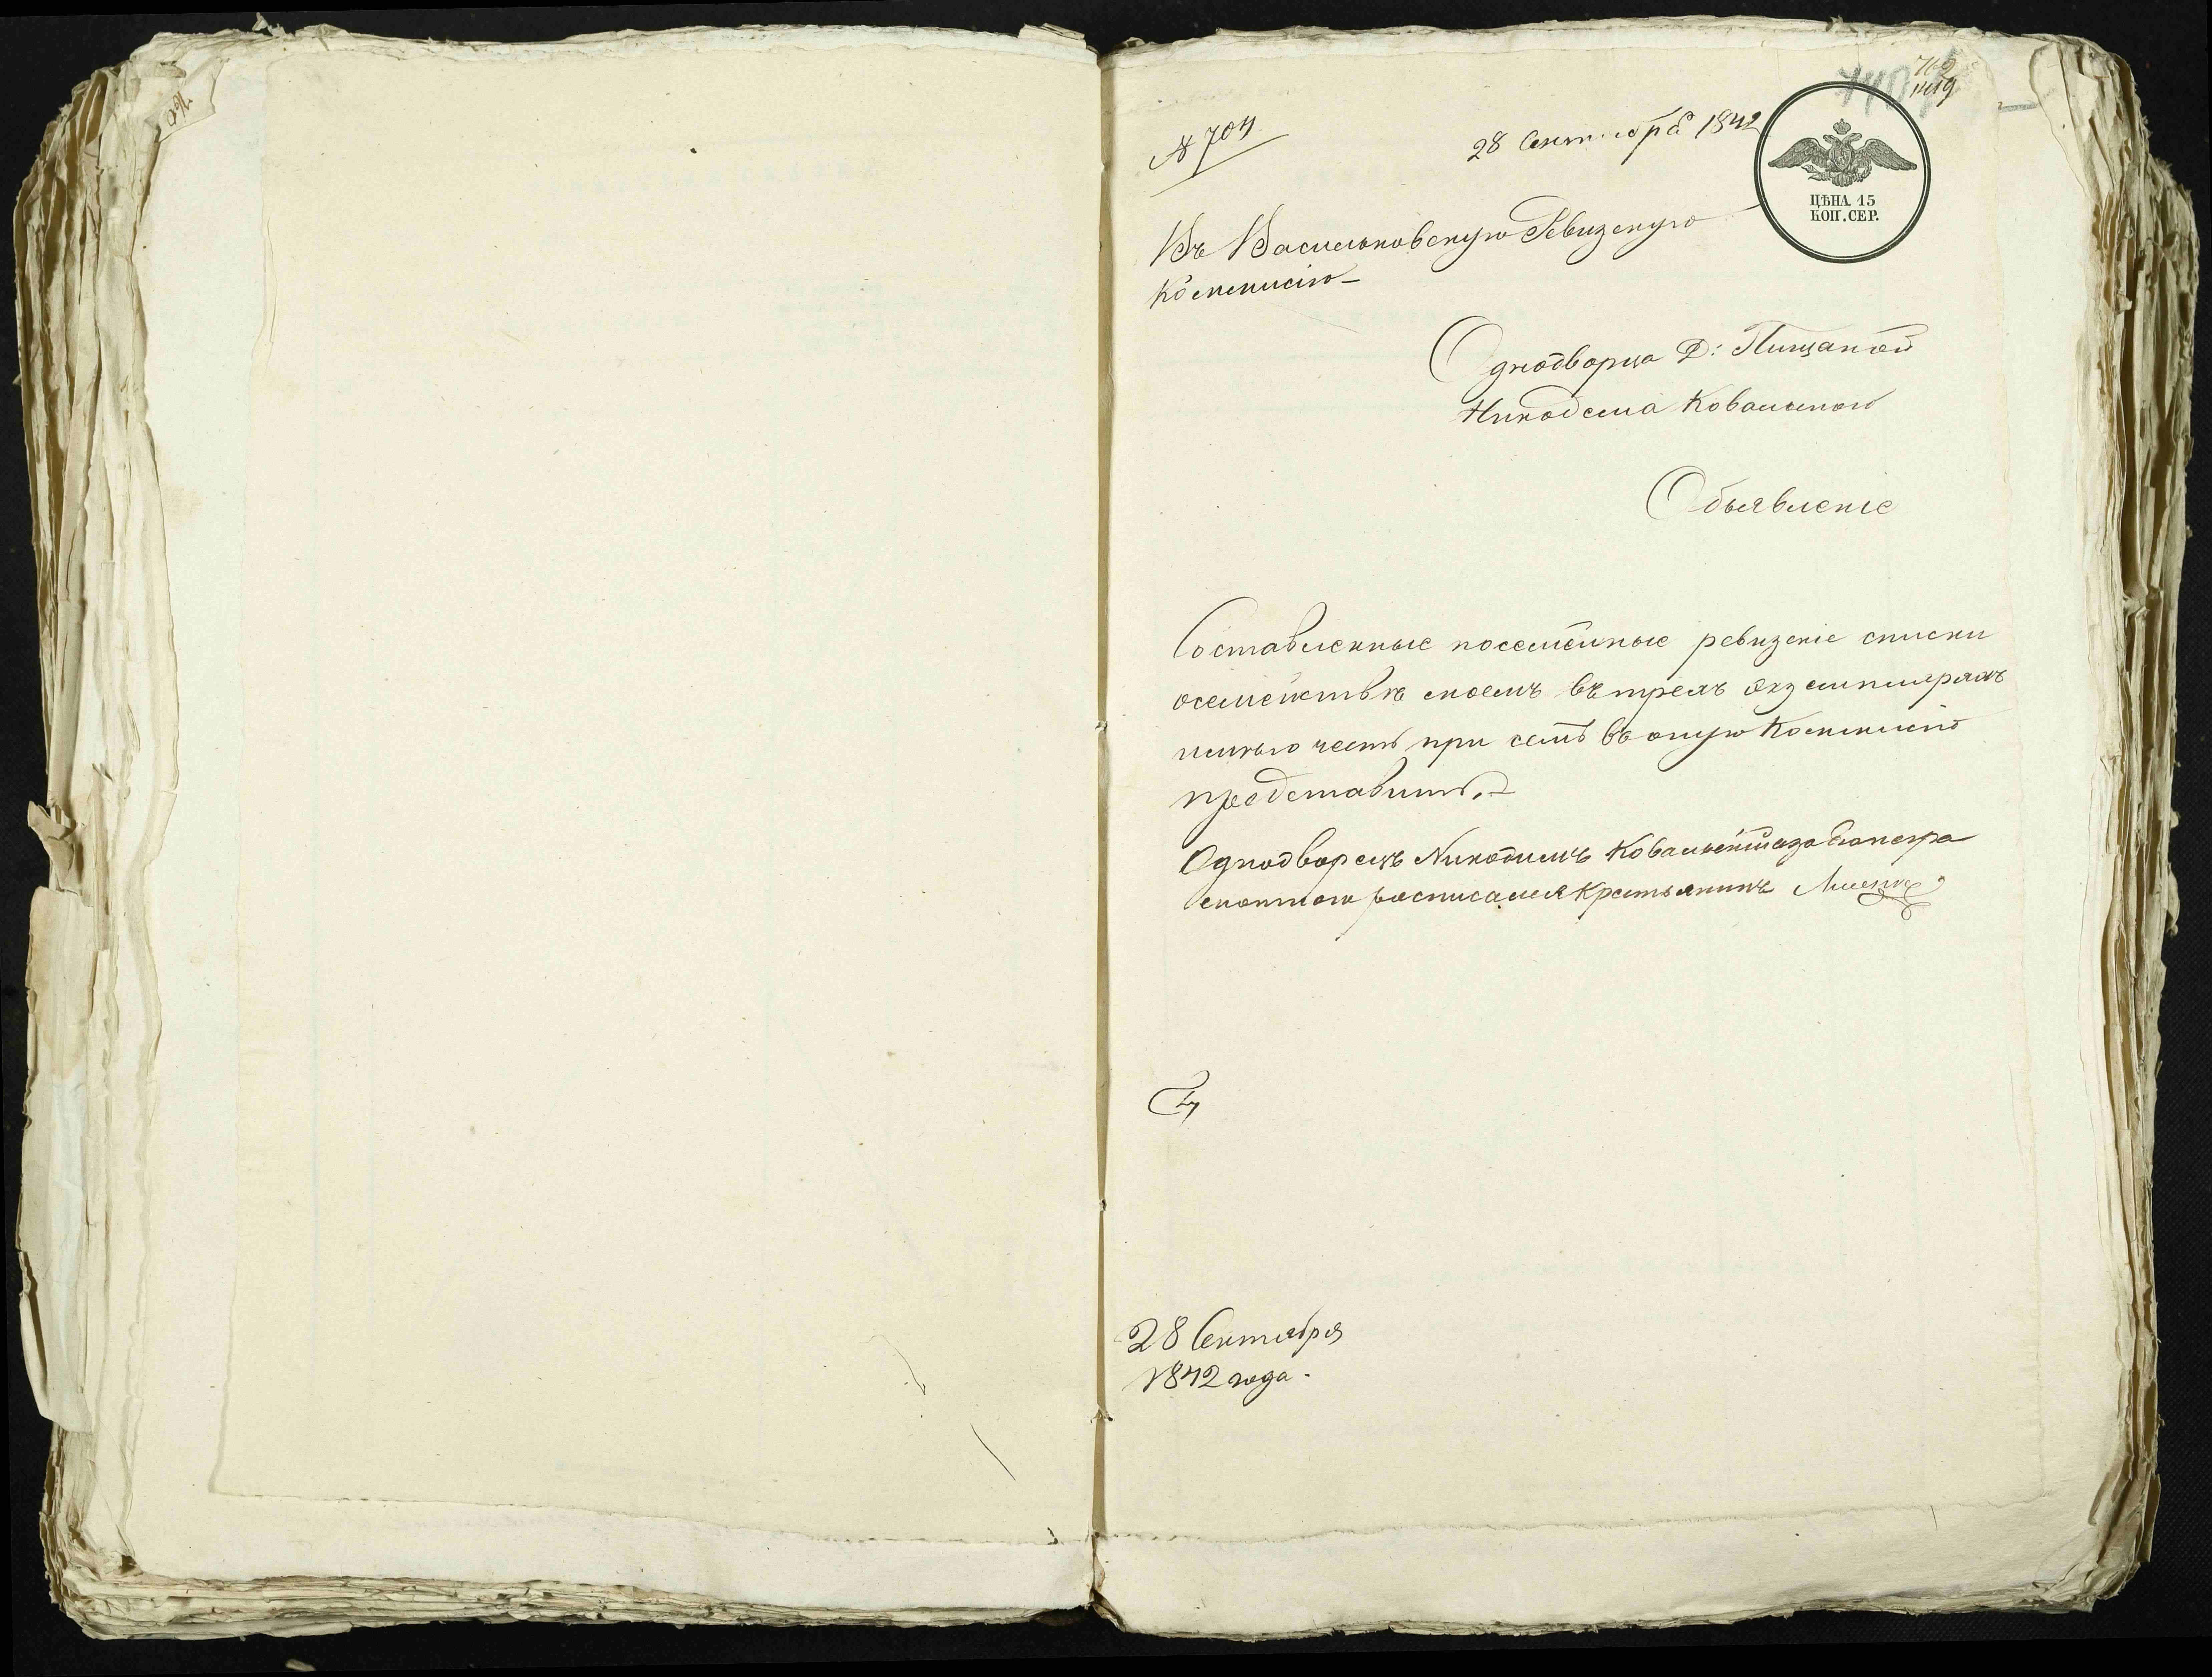 № 704
28 Сентября 1842
762
ЦѢНА 15
КОП. СЕР.
Въ Васильковскую Ревизскую
Коммисію
Однодворца Д: Пищаной
Никодема Ковальского
Объявленіе
Составленные посемейные ревизкіе списки
осемействѣ моемъ въ трехъ экземплярахъ
имѣю честь при семъ въ оную Коммисію
представить.
Однодворецъ Никодимъ Ковальскій аза его неграмотного росписался Крестьянинъ
28 Сентября
1842 года.